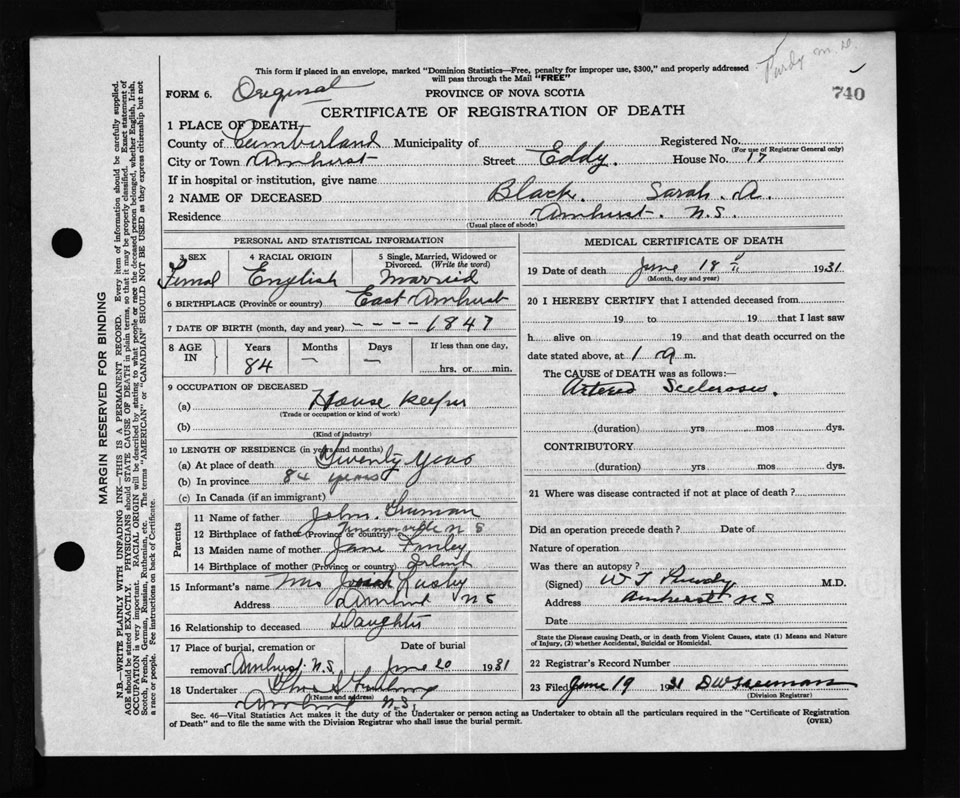 This form if placed in an envelope, marked "Dominion Statistics—Free, penalty for improper use, $300," and properly addressed
will pass through the Mail "FREE"
Purdy M.D.
740
FORM 6. Original
PROVINCE OF NOVA SCOTIA
CERTIFICATE OF REGISTRATION OF DEATH
1 PLACE OF DEATH—
County of Cumberland Municipality of Registered No.
(For use of Registrar General only)
City or Town Amherst Street Eddy. House No. 17
If in hospital or institution, give name
2 NAME OF DECEASED Black. Sarah. A.
Residence Amherst. N.S.
(Usual place of abode)
PERSONAL AND STATISTICAL INFORMATION
3 SEX 4 RACIAL ORIGIN 5 Single, Married, Widowed or Divorced. (Write the word)
Femal English Married
6 BIRTHPLACE (Province or country) East Amherst
7 DATE OF BIRTH (month, day and year) - - - - 1847
8 AGE IN Years Months Days If less than one day,
84 — — hrs. or min.
9 OCCUPATION OF DECEASED
(a) House keeper
(Trade or occupation or kind of work)
(b)
(Kind of industry)
10 LENGTH OF RESIDENCE (in years and months)
(a) At place of death Twenty years
(b) In province 84 years
(c) In Canada (if an immigrant)
Parents
11 Name of father John
12 Birthplace of father (Province or country) N S
13 Maiden name of mother Jane
14 Birthplace of mother (Province or country)
15 Informant's name Mrs
Address Amherst N S
16 Relationship to deceased Daughter
17 Place of burial, cremation or Date of burial
removal Amherst. N.S. June 20 1931
18 Undertaker
(Name and address)
Amherst N.S.
MEDICAL CERTIFICATE OF DEATH
19 Date of death June 18 1931
(Month, day and year)
20 I HEREBY CERTIFY that I attended deceased from
19 to 19 that I last saw
h alive on 19 and that death occurred on the
date stated above, at 1 a m.
The CAUSE of DEATH was as follows:—
Arterio Sclerosis
(duration) yrs mos dys.
CONTRIBUTORY
(duration) yrs mos dys.
21 Where was disease contracted if not at place of death?
Did an operation precede death? Date of
Nature of operation
Was there an autopsy?
(Signed) Purdy M.D.
Address Amherst N S
Date
State the Disease causing Death, or in death from Violent Causes, state (1) Means and Nature
of Injury, (2) whether Accidental, Suicidal or Homicidal.
22 Registrar's Record Number
23 Filed June 19 1931
(Division Registrar)
Sec. 46—Vital Statistics Act makes it the duty of the Undertaker or person acting as Undertaker to obtain all the particulars required in the "Certificate of Registration
of Death" and to file the same with the Division Registrar who shall issue the burial permit. (OVER)
MARGIN RESERVED FOR BINDING
N.B.—WRITE PLAINLY WITH UNFADING INK—THIS IS A PERMANENT RECORD. Every item of information should be carefully supplied.
AGE should be stated EXACTLY. PHYSICIANS should STATE CAUSE OF DEATH in plain terms, so that it may be properly classified. Exact statement of
OCCUPATION is very important. RACIAL ORIGIN will be described by stating to what people or race the deceased person belonged, whether English, Irish,
Scotch, French, German, Russian, Ruthenian, etc. The terms "AMERICAN" or "CANADIAN" SHOULD NOT BE USED as they express citizenship but not
a race or people. See instructions on back of Certificate.